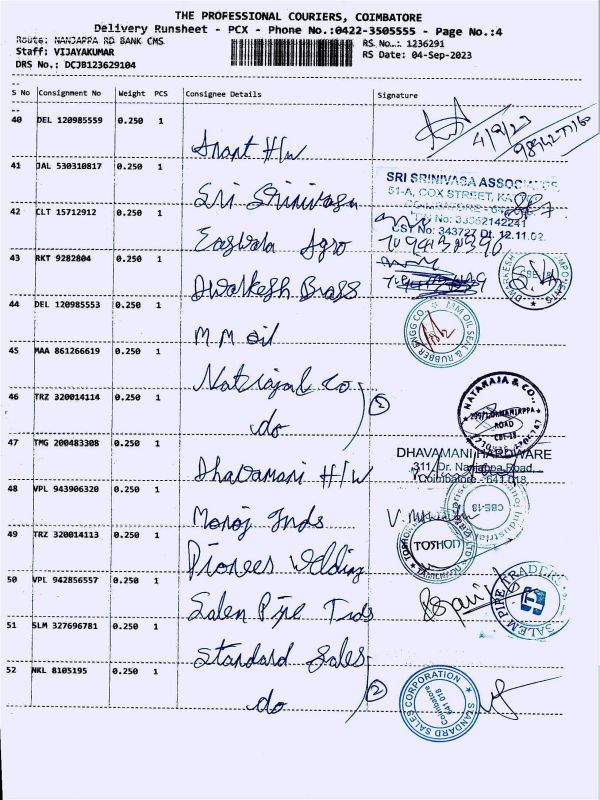 THE PROFESSIONAL COURIERS, COIMBATORE
Delivery Runsheet - PCX - Phone No.:0422-3505555 - Page No.:4
Route: NANJAPPA RD BANK CMS
RS No..: 1236291
Staff: VIJAYAKUMAR
RS Date: 04-Sep-2023
DRS No.: DCJB123629104
S No Consignment No Weight PCS Consignee Details Signature
40 DEL 120985559 0.250 1
4/9/23
Anant H/w
41 JAL 530310817 0.250 1
SRI SRINIVASA ASSOCIATES
51-A, COX STREET,
Sri Srinivasa
42 CLT 15712912 0.250 1
CST No: 343727 Dt. 12.11.02
Easwara Agro
43 RKT 9282804 0.250 1
Dwarkesh Brass
DWARKESH COMPONENTS
CBE-18
44 DEL 120985553 0.250 1
M M Oil
MM OIL SEAL & RUBBER ENGG CO
45 MAA 861266619 0.250 1
Natrajal Co
46 TRZ 320014114 0.250 1
do
2
NATARAJA & CO.,
ROAD
CBE-18
47 TMG 200483308 0.250 1
DHAVAMANI HARDWARE
311, Dr. Nanjappa Road,
Coimbatore - 641 018.
Dhavamani H/w
48 VPL 943906320 0.250 1
CBE-18
Manoj Inds
49 TRZ 320014113 0.250 1
TOSHON
Pioneer Welding
50 VPL 942856557 0.250 1
SALEM PIPE TRADERS
Salem Pipe Trds
51 SLM 327696781 0.250 1
Standard Sales
52 NKL 8105195 0.250 1
do
2
STANDARD SALES CORPORATION
Coimbatore
641 018